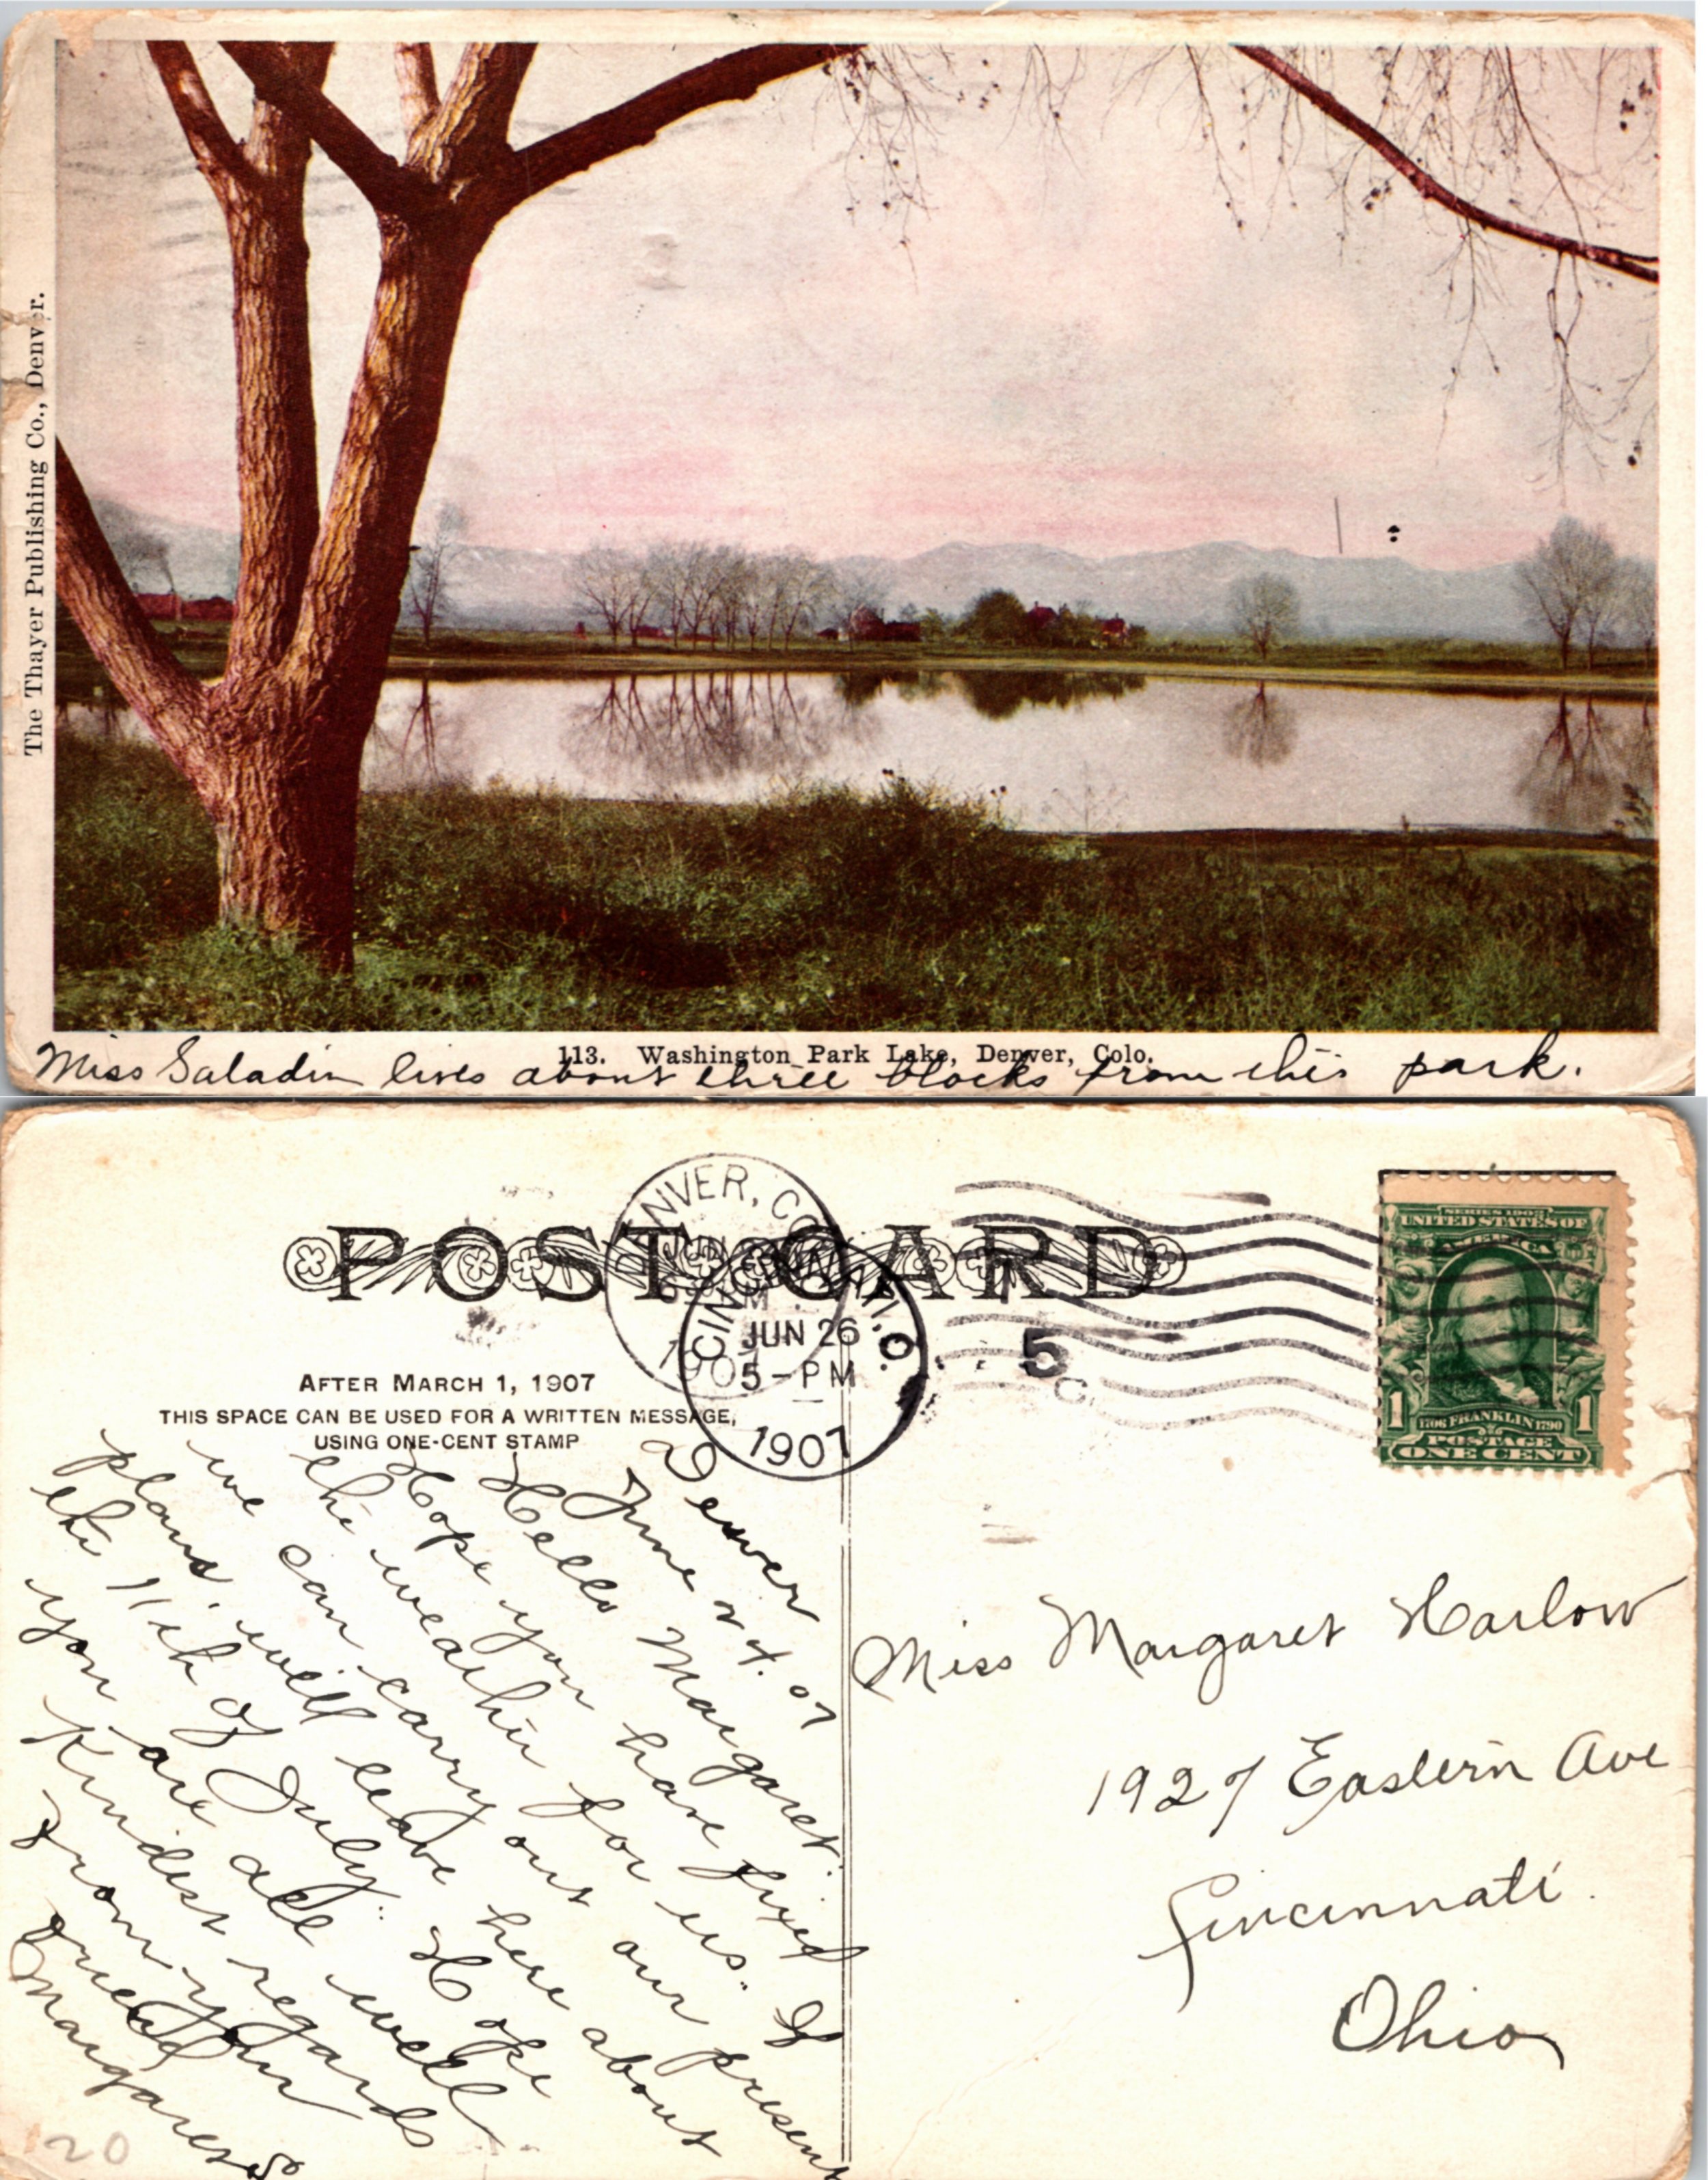 The Thayer Publishing Co., Denver.
113. Washington Park Lake, Denver, Colo.
Miss Saladin lives about three blocks from this park.
POST CARD
DENVER, COLO.
JUN
M
1907
CINCINNATI, O.
JUN 26
5-PM
1907
5
C
SERIES 1902
UNITED STATES OF
AMERICA
1 1706 FRANKLIN 1790 1
POSTAGE
ONE CENT
AFTER MARCH 1, 1907
THIS SPACE CAN BE USED FOR A WRITTEN MESSAGE,
USING ONE-CENT STAMP
Denver
June 24. 07
Hello Margaret:
Hope you have fixed
the weather for us. If
we can carry out our present
plans, will leave here about
the 11th of July. Hope
you are all well
Kindest regards
From your
friend
Margaret
20
Miss Margaret Harlow
1927 Eastern Ave
Cincinnati
Ohio